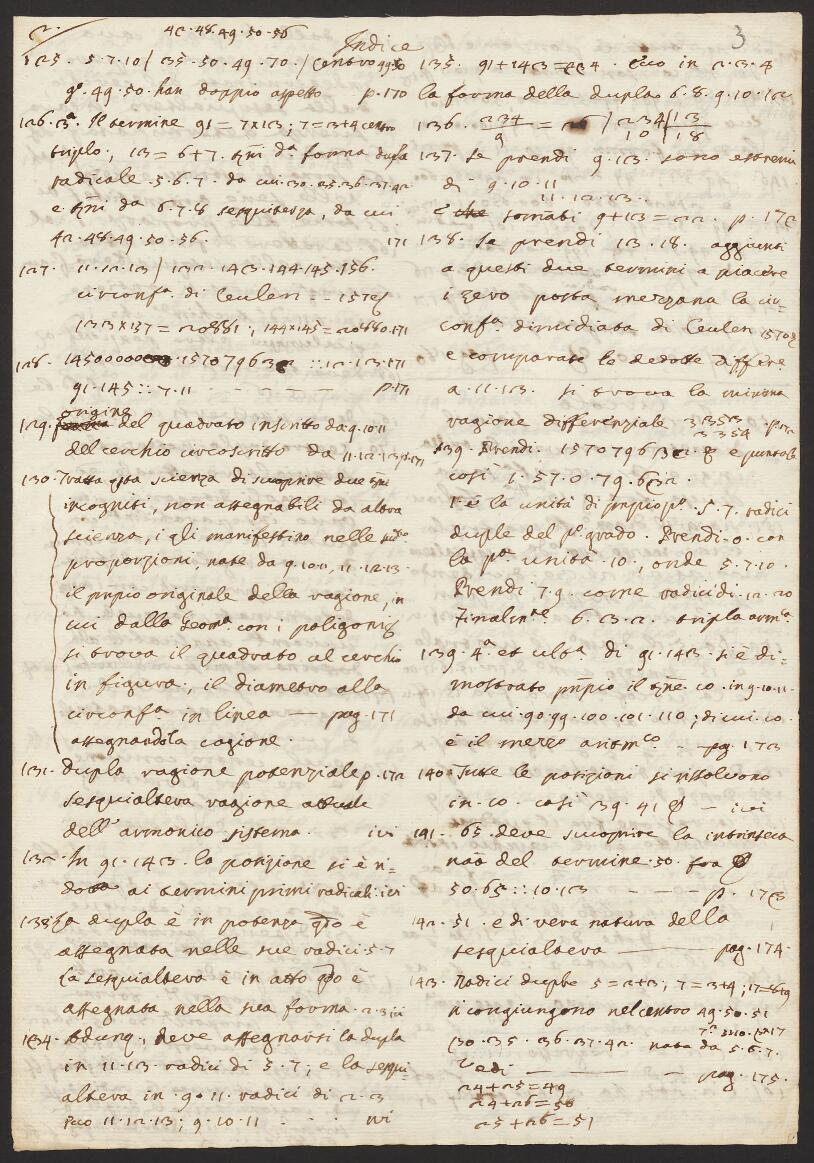 2.
42·48·49·50·56
Indice
3
125. 5·7·10 / 35·50·49·70 / Centro 49·50
49·50·han doppio aspetto p. 170
126. 3ª. Il termine 91 = 7×13; 7=3+4 centro
triplo, 13 = 6+7. forma dupla
radicale 5·6·7· da cui 30·35·36·37·42
e da 6·7·8 sesquiterza, da cui
42·48·49·50·56. 171
127. 11·12·13 / 132·143·144·145·156.
circonfª. di Ceulen -- 1570
133×157 = 20881; 144×145=20880·171
128. 1570796 :: 12·13·171
91·145::7·11 - - - - - p. 171
129. origine del quadrato inscritto da 9·10·11
del cerchio circoscritto da 11·12·13 p. 171
130. Tratta scienza di scuoprire due
incogniti, non assegnabili da altra
scienza, i gli manifestino nelle
proporzioni nate da 9·10·11, 11·12·13·
il originale della ragione, in
cui dalla Geomª. con i poligoni
si trova il quadrato al cerchio
in figura, il diametro alla
circonfª. in linea — pag. 171
assegnandola cagione.
131. Dupla ragione potenziale p. 172
Sesquialtera ragione attuale
dell'armonico sistema. ivi
132. In 91·143 la posizione si è ri-
dotta ai termini primi radicali: ivi
133. La dupla è in potenza è
assegnata nelle sue radici 5·7
La sesquialtera è in atto è
assegnata nella sua forma 2·3 ivi
134. Adunq., deve assegnarsi la dupla
in 11·13 radici di 5·7; e la sesqui-
altera in 9·11 radici di 2·3
Ecco 11·12·13; 9·10·11 - - - ivi
135. 91+143=234. Ecco in 2·3·4
la forma della dupla 6·8·9·10·12
136. 234/9 = 26 / 234/10 | 13/18
137. Se prendi 9·13· sono estremi
di 9·10·11
11·12·13·
e sommati 9+13=22. p. 172
138. Se prendi 13·18· aggiunti
a questi due termini a piacere
i zero posta mezzana la cir-
confª. dimidiata di Ceulen 1570
e comparate le dedotte differe.
a 11·13. si trova la minima
ragione differenziale 3353
3354
139. Prendi. 1570796 e puntale
così 1·57·0·79·632.
1 è la unità di 5·7· radici
duple del pº. grado. Prendi 0· con
la pª. unità 10, onde 5·7·10.
Prendi 7·9· come radici di 12·20
Finalmte. 6·3·2. tripla armª.
139. 4ª et ultª. di 91·143· si è di-
mostrato il 10· in 9·10·11·
da cui 90·99·100·101·110; di cui 10·
è il mezzo aritmco. - pag. 173
140. Tutte le posizioni si risolvono
in 10· così 39·41 — ivi
141. 65 deve scuoprire la intrinseca
del termine 50 fra
50·65::10·13 - - - p. 173
142. 51 e di vera natura della
sesquialtera ——— pag. 174
143. Radici duple 5=2+3; 7=3+4; 17=8+9
si congiungono nel centro 49·50·51
30·35·36·37·42 nate da 5·6·7.
Vedi ——— pag. 175.
24+25=49
24+26=50
25+26=51